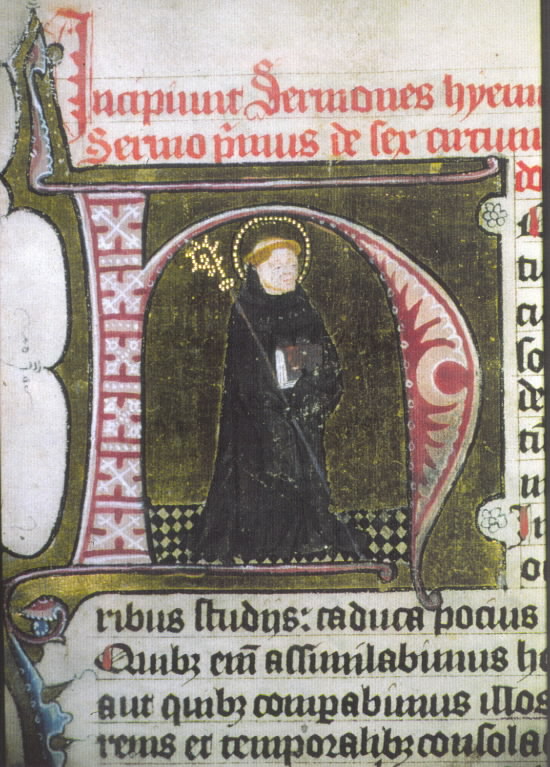 Incipiunt Sermones hyem
Sermo p̄mus de sex circum
do
tu
so
de
ribus studijs: caduca pocius
Quibꝫ em̄ assimilabimus ho
aut quibꝫ compabimus illos
renis et temporalibꝫ consola